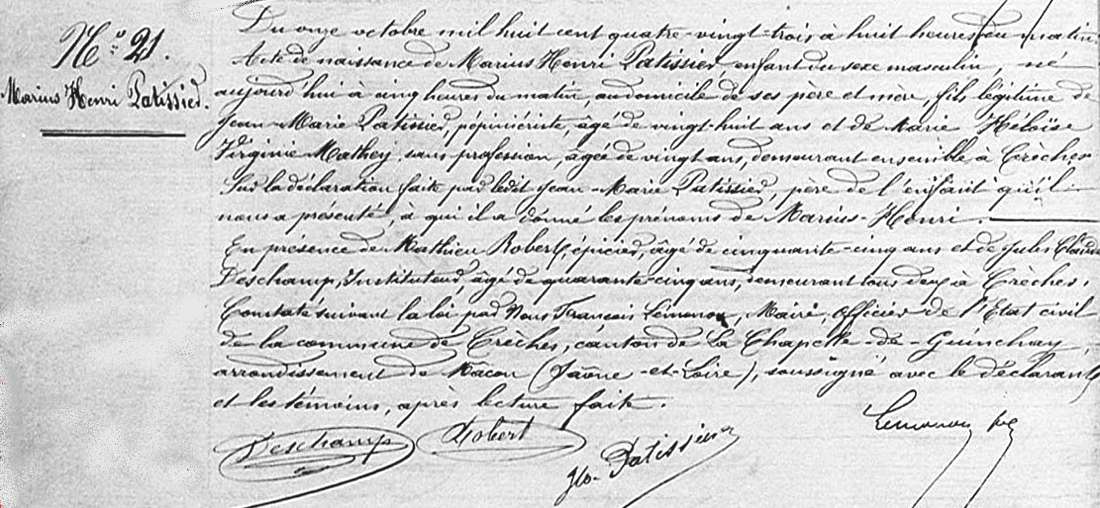 N° 21.
Marius Henri Patissier.
Du onze octobre mil huit cent quatre-vingt-trois à huit heures du matin.
Acte de naissance de Marius Henri Patissier, enfant du sexe masculin, né
aujourd'hui à cinq heures du matin, au domicile de ses père et mère, fils légitime de
Jean-Marie Patissier, pépiniériste, âgé de vingt-huit ans et de Marie Héloïse
Virginie Mathey, sans profession, âgée de vingt ans, demeurant ensemble à Crèches
Sur la déclaration faite par ledit Jean-Marie Patissier, père de l'enfant qu'il
nous a présenté, à qui il a donné les prénoms de Marius-Henri.
En présence de Mathieu Robert, épicier, âgé de cinquante-cinq ans et de Jules Claude
Deschamp, Instituteur, âgé de quarante-cinq ans, demeurant tous deux à Crèches.
Constaté suivant la loi par Nous François Lémonon, Maire, Officier de l'Etat civil
de la commune de Crèches, canton de La Chapelle-de-Guinchay,
arrondissement de Macon (Saône-et-Loire), soussigné avec le déclarant
et les témoins, après lecture faite.
Deschamp Robert Patissier Lemonon